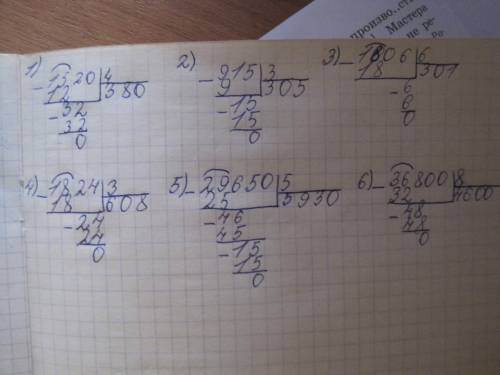 произво..ств
Мастера
не ре-
1) - 1520 | 4
12 | 380
- 32
32
0
2) - 915 | 3
9 | 305
- 15
15
0
3) - 1806 | 6
18 | 301
- 6
6
0
4) - 1824 | 3
18 | 608
- 24
24
0
5) - 29650 | 5
25 | 5930
- 46
45
- 15
15
0
6) - 36800 | 8
32 | 4600
- 48
48
0